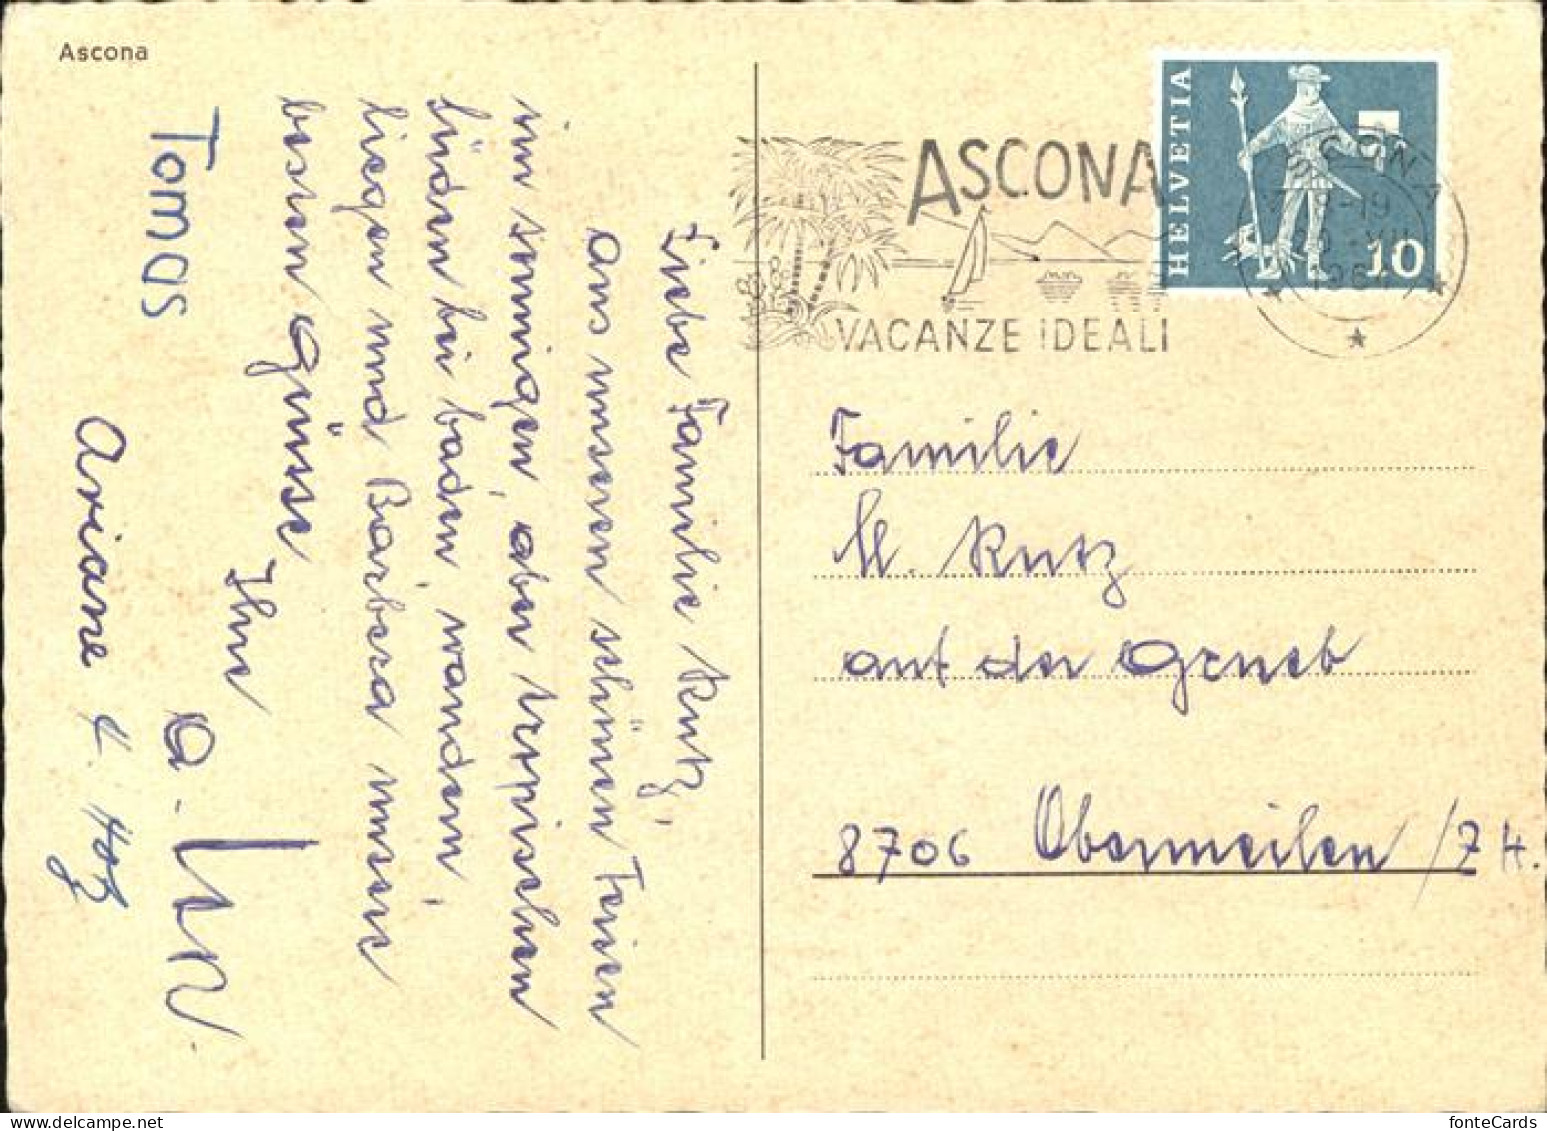 Ascona
Liebe Familie Rutz,
aus unseren schönen Ferien
im sonnigen, aber tropischen
Süden bei baden, wandern,
liegen und Barbera unsere
besten Grüsse
Ihre
Tomas
Ariane
ASCONA
VACANZE IDEALI
HELVETIA
10
ASCONA
-19
VII
196
Familie
Rutz
auf der Grueb
8706 Obermeilen / ZH.
fonteCards